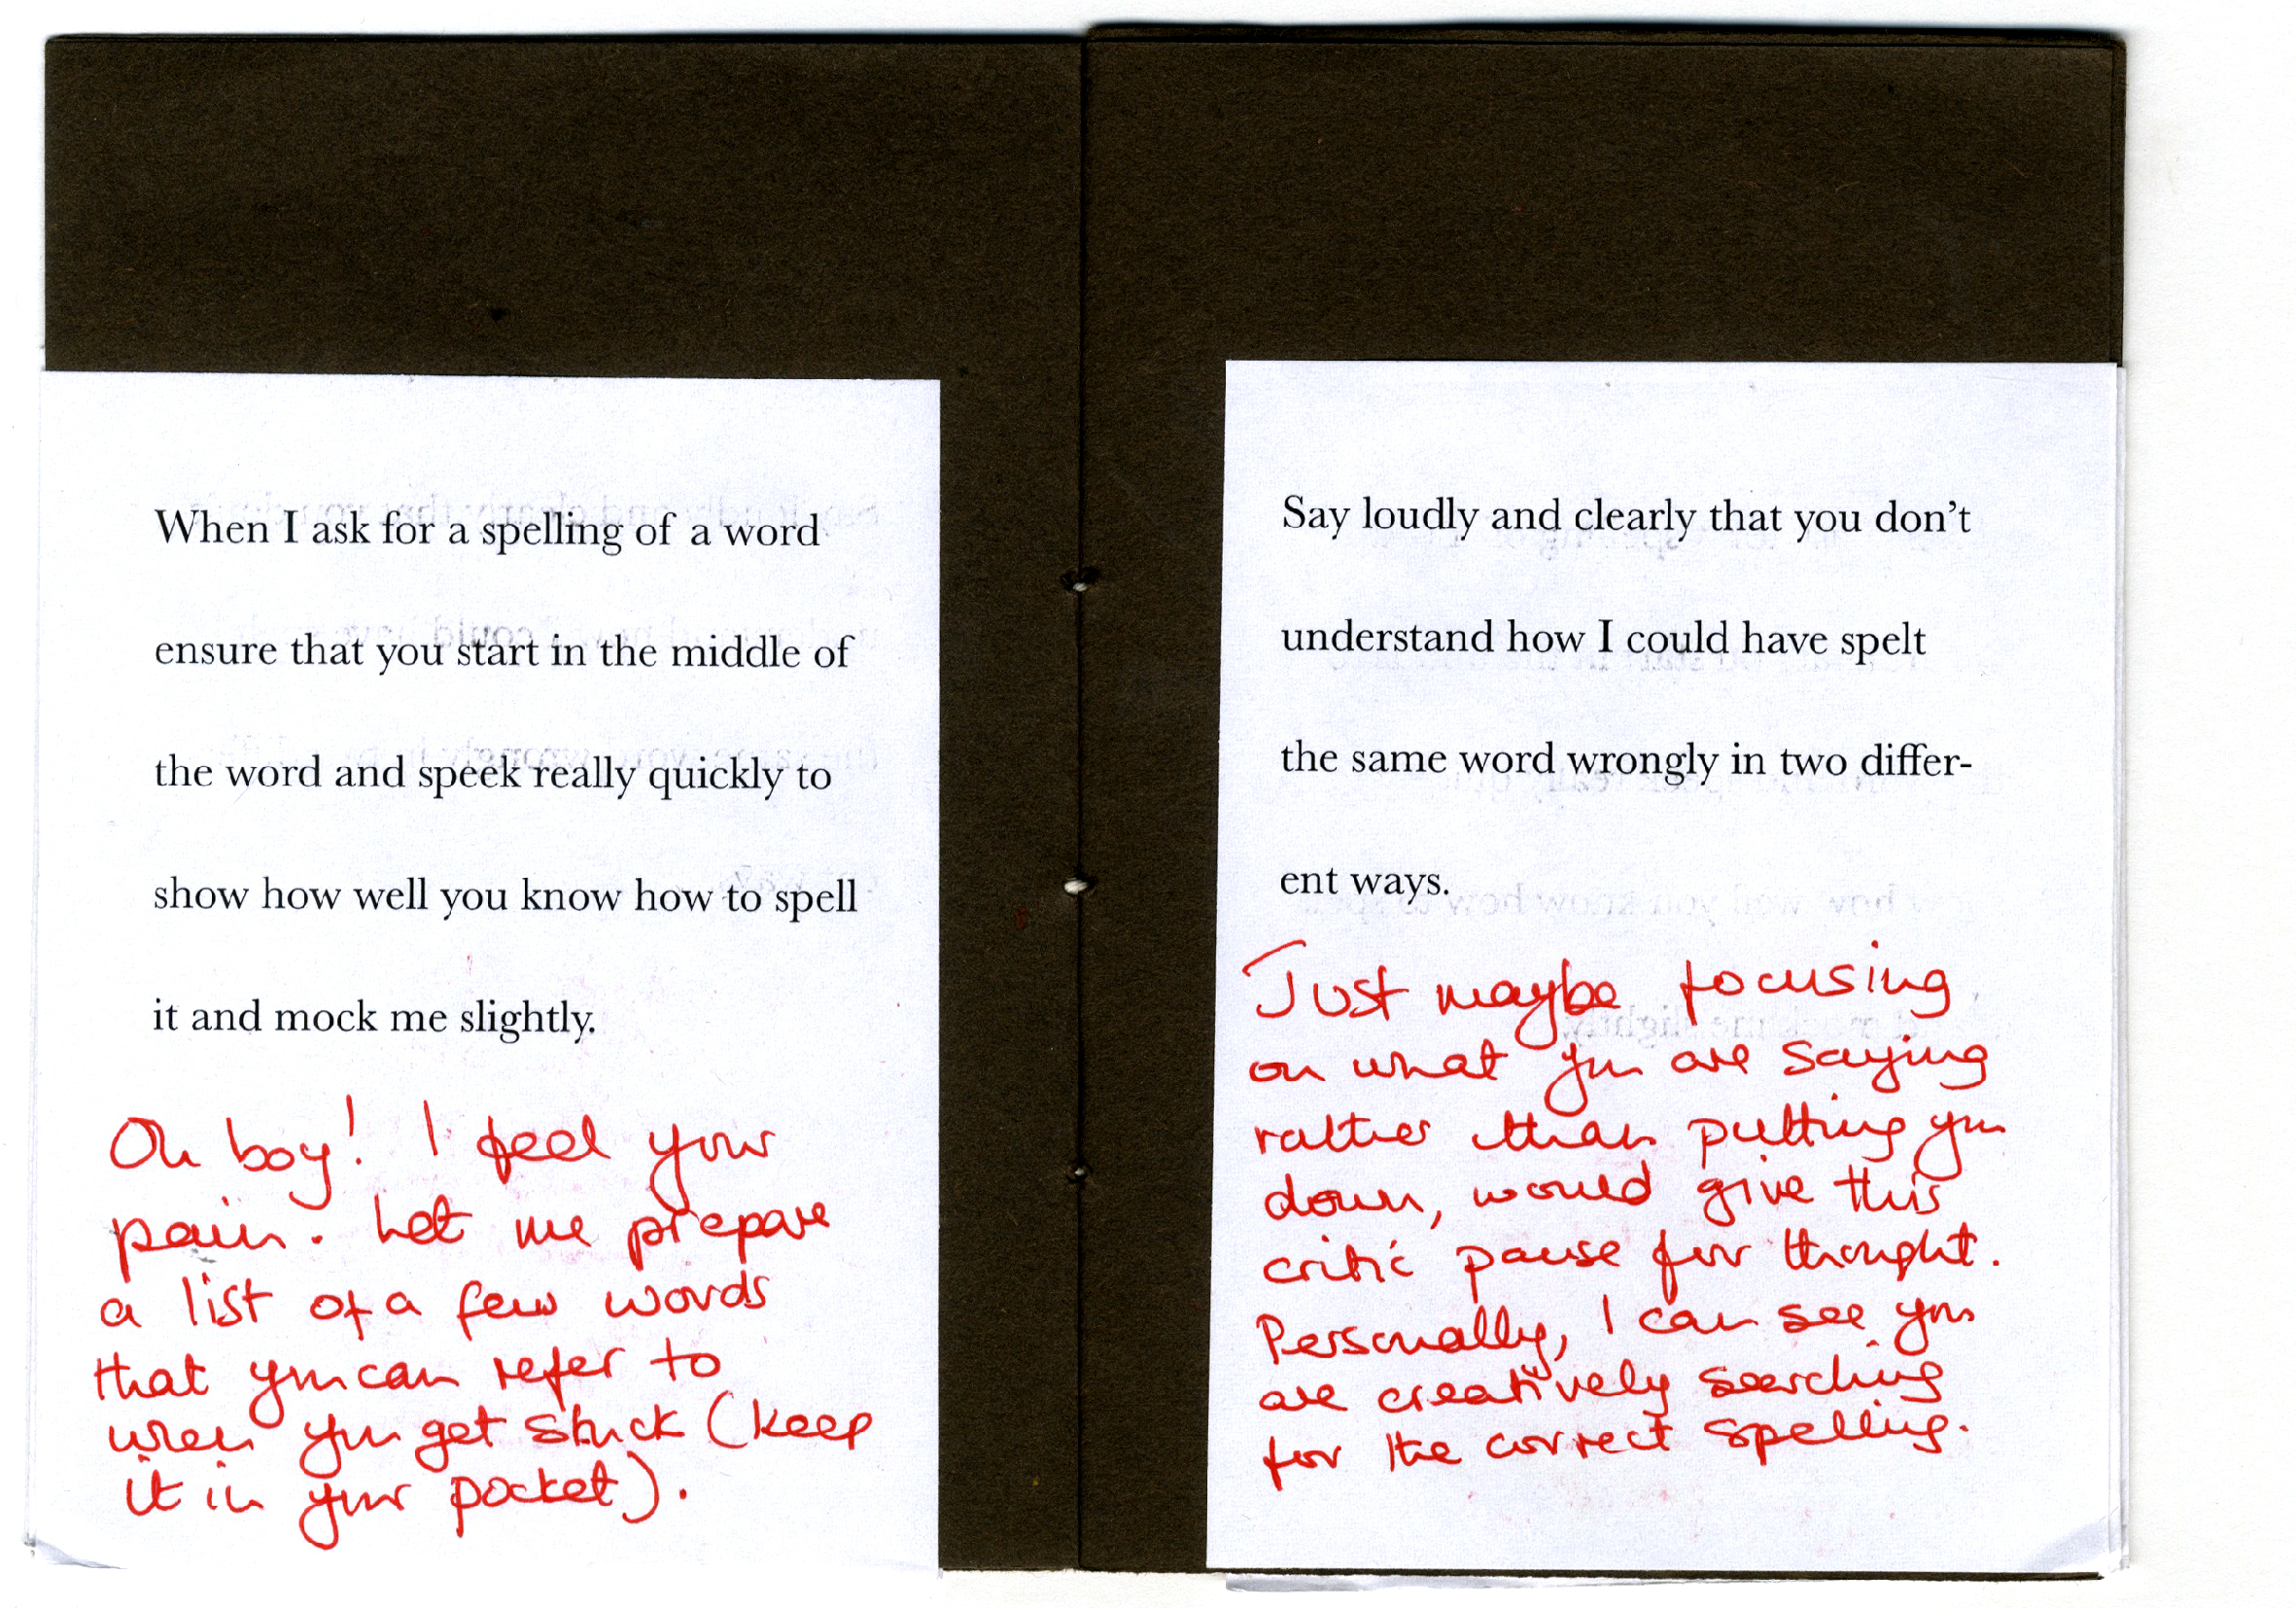 When I ask for a spelling of a word
ensure that you start in the middle of
the word and speek really quickly to
show how well you know how to spell
it and mock me slightly.
Oh boy! I feel your
pain. Let me prepare
a list of a few words
that you can refer to
when you get stuck (keep
it in your pocket).
Say loudly and clearly that you don't
understand how I could have spelt
the same word wrongly in two differ-
ent ways.
Just maybe focusing
on what you are saying
rather than putting you
down, would give this
critic pause for thought.
Personally, I can see you
are creatively searching
for the correct spelling.